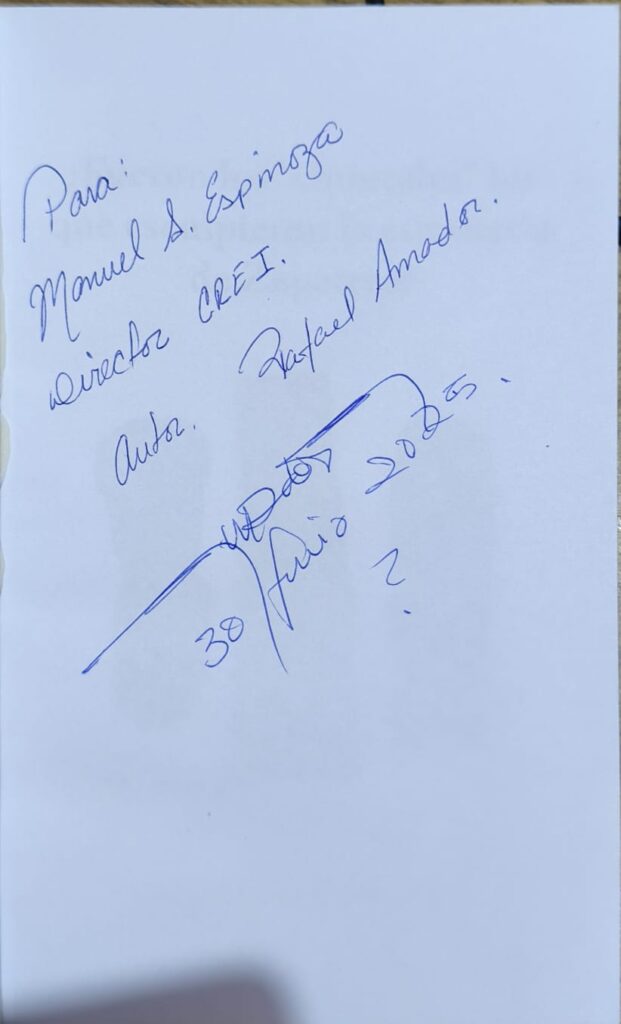 Para:
Manuel S. Espinoza
Director CREI.
Autor. Rafael Amador.
30/Junio 2025.
?